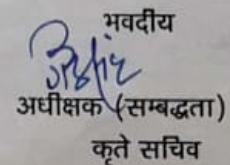 भवदीय
अधीक्षक (सम्बद्धता)
कृते सचिव